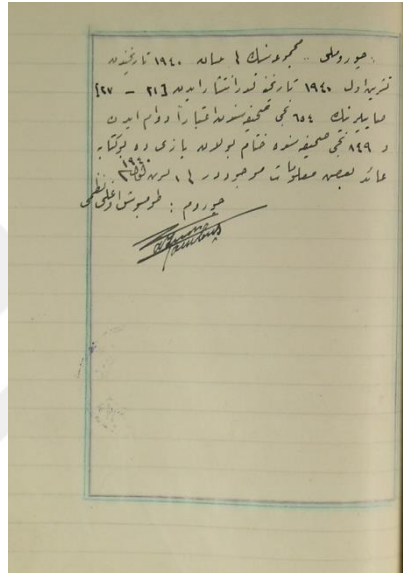 « چورومی » مجموعه‌سنك ١ نیسان ١٩٤٠ تاریخندن
تشرین اول ١٩٤٠ تاریخنه قدر انتشار ایدن [٢١ – ٢٧]
صاییلرینك ٦٥٤ نجی صحیفه‌سندن اعتباراً دوام ایدن
و ٨٤٩ نجی صحیفه‌سنده ختام بولان یازی ده بو كتابه
عائد بعض معلومات موجوددر ١٩٤٠
چوروم :